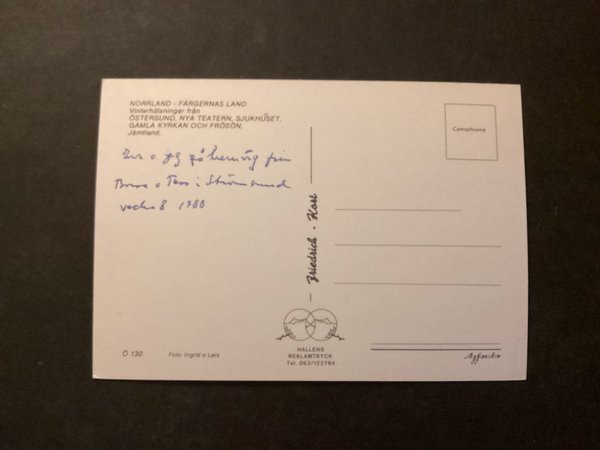 NORRLAND - FÄRGERNAS LAND
Vinterhälsningar från
ÖSTERSUND, NYA TEATERN, SJUKHUSET,
GAMLA KYRKAN OCH FRÖSÖN,
Jämtland.
o. jag på hemväg från
o Tess i Strömsund
vecka 8 1988
Camochrome
Friedrich - Karl
HALLENS
REKLAMTRYCK
Tel. 063/123784
Ö 130
Foto: Ingrid o Lars